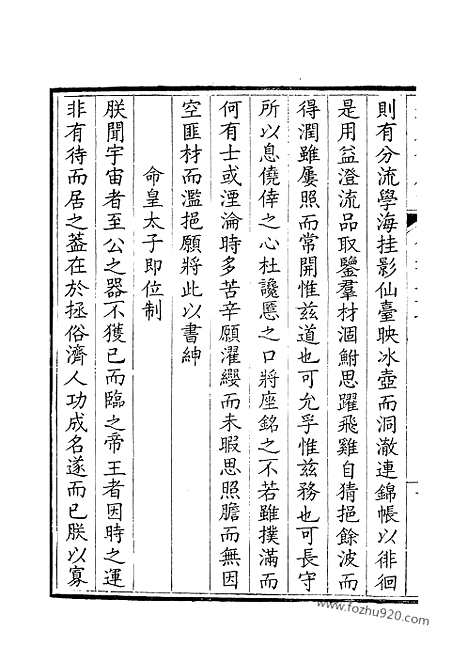 則有分流學海挂影仙臺映冰壺而洞澈連錦帳以徘徊
是用益澄流品取鑒羣材涸鮒思躍飛雞自猜挹餘波而
得潤雖屢照而常開惟兹道也可允孚惟兹務也可長守
所以息僥倖之心杜讒慝之口將座銘之不若雖撲滿而
何有士或湮淪時多苦辛願濯纓而未暇思照膽而無因
空匪材而濫挹願將此以書紳
命皇太子即位制
朕聞宇宙者至公之器不獲已而臨之帝王者因時之運
非有待而居之蓋在於拯俗濟人功成名遂而已朕以寡
www.fozhu920.com